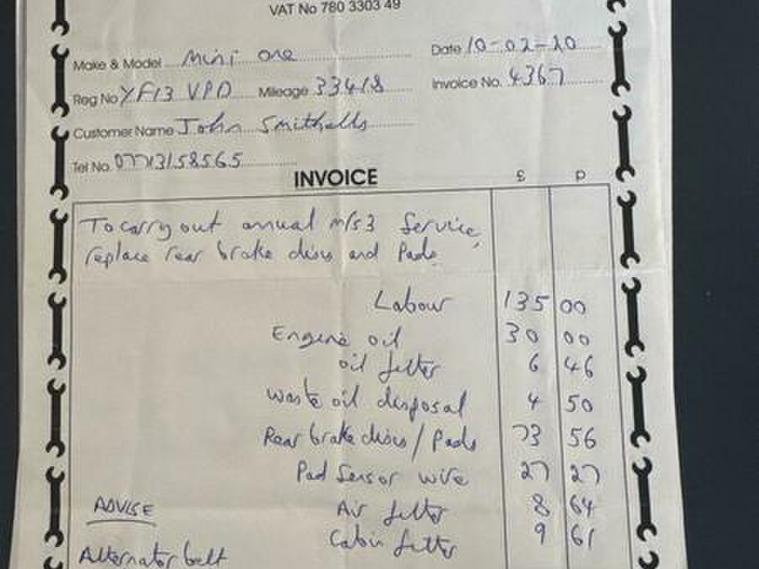 VAT No 780 3303 49
Make & Model Mini one Date 10-02-20
Reg No YF13 VPD Mileage 33418 Invoice No. 4367
Customer Name John Smithells
Tel No. 07713158565
INVOICE £ p
To carry out annual m/s3 Service,
replace rear brake discs and Pads.
Labour 135 00
Engine oil 30 00
oil filter 6 46
Waste oil disposal 4 50
Rear brake discs/Pads 73 56
Pad Sensor wire 27 27
ADVISE Air filter 8 64
Cabin filter 9 61
Alternator belt